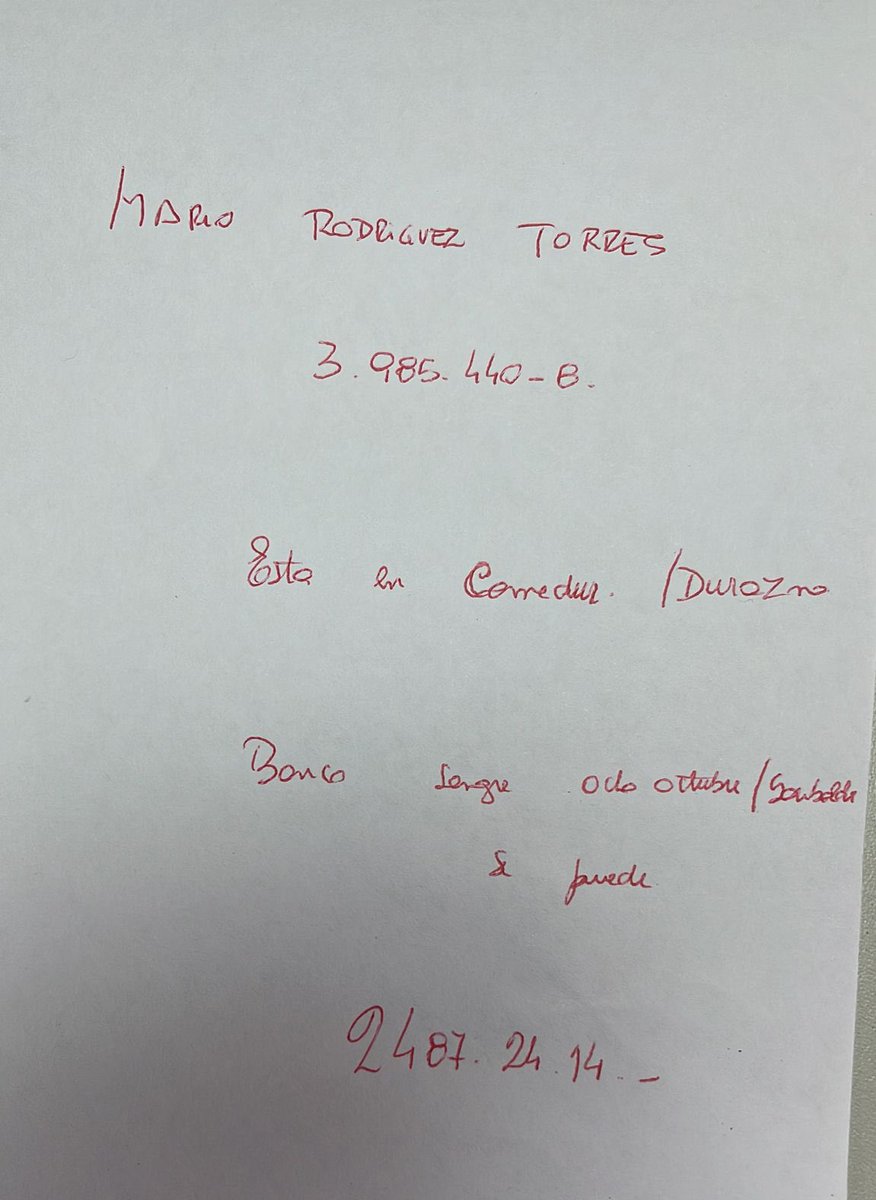 MARIO RODRIGUEZ TORRES
3.985.440-8.
Esta en Camedur. /Durazno
Banco Sangre ocho octubre/Garibaldi
Se puede
2487.24.14.-